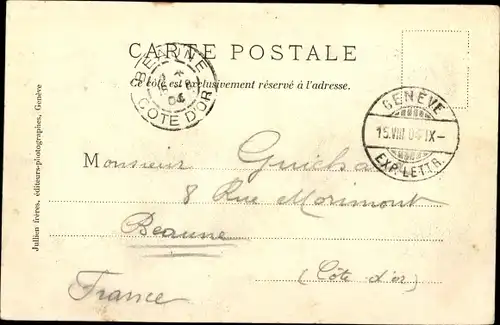 CARTE POSTALE
Ce côté est exclusivement réservé à l'adresse.
BEAUNE
04
CÔTE D'OR
GENÈVE
15.VIII.04-IX-
EXP. LETTR.
Monsieur
8 Rue Morimont
Beaune
(Côte d'or)
France
Jullien frères, éditeurs-photographes, Genève